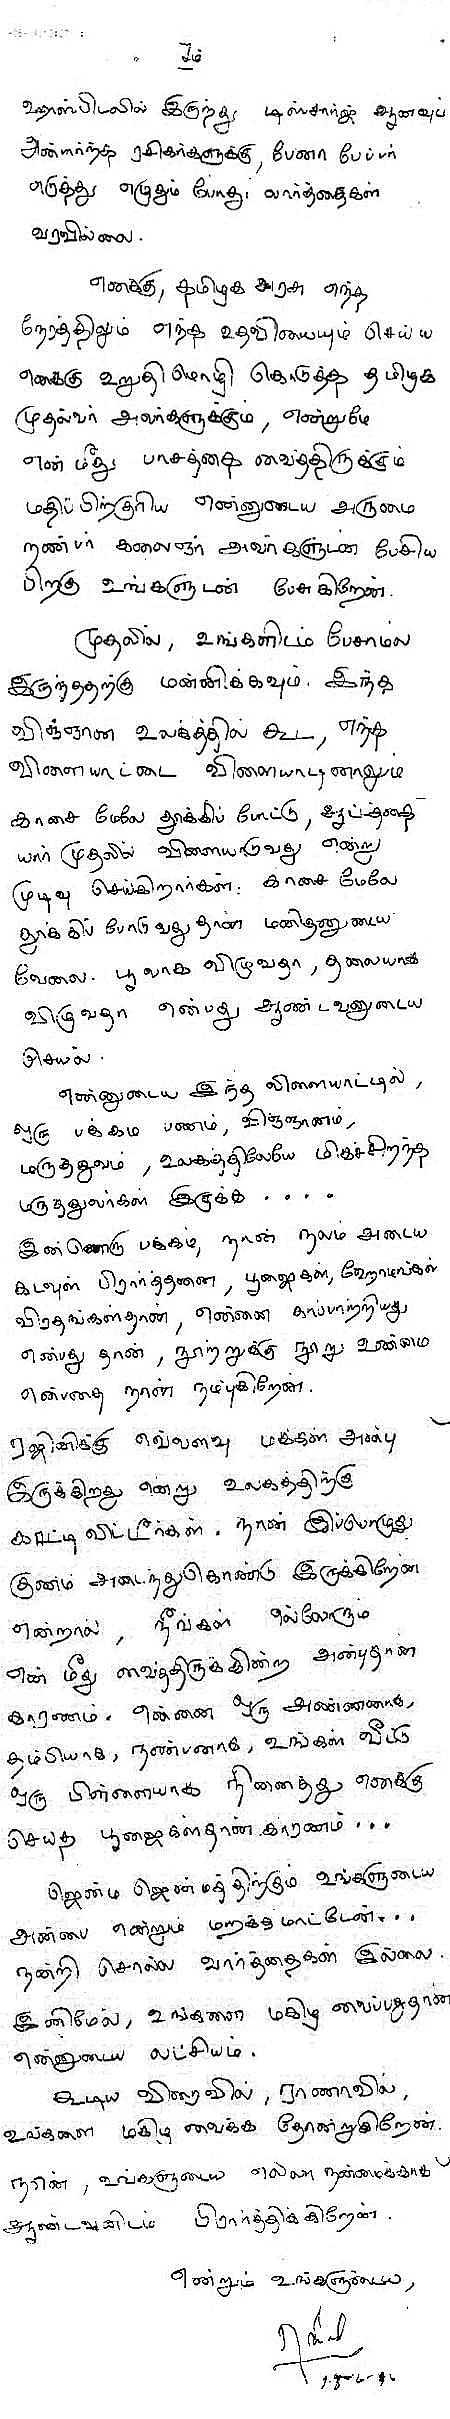 ஹாஸ்பிடலில் இருந்து டிஸ்சார்ஜ் ஆனவுடன்
அன்பார்ந்த ரசிகர்களுக்கு, பேனா பேப்பர்
எடுத்து எழுதும் போது வார்த்தைகள்
வரவில்லை.
எனக்கு, தமிழக அரசு எந்த
நேரத்திலும் எந்த உதவியையும் செய்ய
எனக்கு உறுதிமொழி கொடுத்த தமிழக
முதல்வர் அவர்களுக்கும், என்றுமே
என் மீது பாசத்தை வைத்திருக்கும்
மதிப்பிற்குரிய என்னுடைய அருமை
நண்பர் கலைஞர் அவர்களுடன் பேசிய
பிறகு உங்களுடன் பேசுகிறேன்.
முதலில், உங்களிடம் பேசாமல்
இருந்ததற்கு மன்னிக்கவும். இந்த
விஞ்ஞான உலகத்தில் கூட, எந்த
விளையாட்டை விளையாடினாலும்
காசை மேலே தூக்கிப் போட்டு, ஆட்டத்தை
யார் முதலில் விளையாடுவது என்று
முடிவு செய்கிறார்கள். காசை மேலே
தூக்கிப் போடுவதுதான் மனிதனுடைய
வேலை. பூவாக விழுவதா, தலையாக
விழுவதா என்பது ஆண்டவனுடைய
செயல்.
என்னுடைய இந்த விளையாட்டில்,
ஒரு பக்கம் பணம், விஞ்ஞானம்,
மருத்துவம், உலகத்திலேயே மிகச்சிறந்த
மருத்துவர்கள் இருக்க ....
இன்னொரு பக்கம், நான் நலம் அடைய
கடவுள் பிரார்த்தனை, பூஜைகள், ஹோமங்கள்
விரதங்கள்தான், என்னை காப்பாற்றியது
என்பது தான், நூற்றுக்கு நூறு உண்மை
என்பதை நான் நம்புகிறேன்.
ரஜினிக்கு எவ்வளவு மக்கள் அன்பு
இருக்கிறது என்று உலகத்திற்கு
காட்டி விட்டீர்கள். நான் இப்பொழுது
குணம் அடைந்துகொண்டு இருக்கிறேன்
என்றால், நீங்கள் எல்லோரும்
என் மீது வைத்திருக்கின்ற அன்புதான்
காரணம். என்னை ஒரு அண்ணனாக,
தம்பியாக, நண்பனாக, உங்கள் வீட்டு
ஒரு பிள்ளையாக நினைத்து எனக்கு
செய்த பூஜைகள்தான் காரணம் ...
ஜென்ம ஜென்மத்திற்கும் உங்களுடைய
அன்பை என்றும் மறக்கமாட்டேன்...
நன்றி சொல்ல வார்த்தைகள் இல்லை.
இனிமேல், உங்களை மகிழ வைப்பதுதான்
என்னுடைய லட்சியம்.
கூடிய விரைவில், ராணாவில்,
உங்களை மகிழ வைக்க தோன்றுகிறேன்.
நான், உங்களுடைய எல்லா நன்மைக்காக
ஆண்டவனிடம் பிரார்த்திக்கிறேன்.
என்றும் உங்களுடைய,